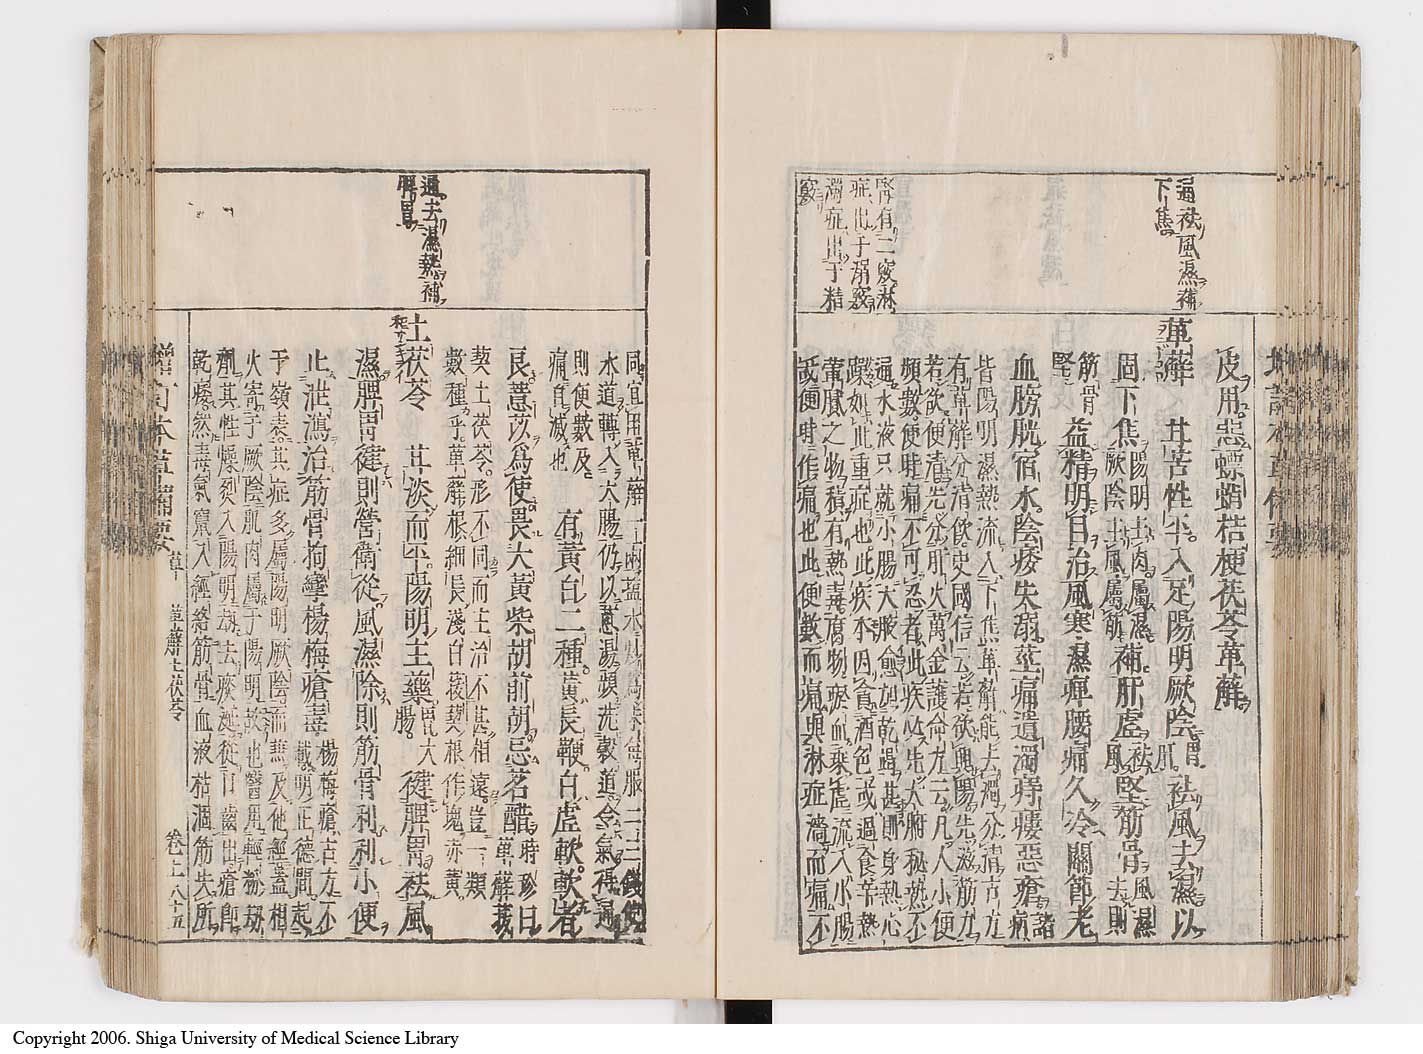 皮用惡螵蛸桔梗茯苓萆薢
通袪風濕補
下焦
萆薢　甘苦性平入足陽明厥陰胃肝袪風去濕以
固下焦陽明主肉屬濕厥陰主風屬筋補肝虛袪風堅筋骨風濕去則
筋骨堅益精明目治風寒濕痺腰痛久冷關節老
血膀胱宿水陰痿失溺莖痛遺濁痔瘻惡瘡諸病
皆陽明濕熱流入下焦萆薢能去濁分清古方
有萆薢分清飲史國信云若欲興陽先滋筋力
若欲便清先分肝火萬金護命方云凡人小便
頻數便時痛不可忍者此疾必先大腑秘熱不
通水液只就小腸大腑愈加乾竭甚則身熱心
躁如此重症也此疾本因貪酒色或過食辛熱
葷膩之物積有熱毒腐物瘀血乘虛流入小腸
故便時作痛也此便數而痛與淋症濇而痛不
腎有二竅淋
症出于溺竅
濁症出于精
竅
同宜用萆薢一兩鹽水炒爲末每服二三錢使
水道轉入大腸仍以蔥湯頻洗穀道令氣得通
則便數及痛自減也　有黃白二種黃長鞕白虛軟軟者
良薏苡爲使畏大黃柴胡前胡忌茗醋時珍曰萆薢菝
葜土茯苓形不同而主治不甚相遠豈一類
數種乎萆薢根細長淺白菝葜根作塊赤黃
通去濕熱補
脾胃
土茯苓　甘淡而平陽明主藥胃大腸健脾胃袪風
濕脾胃健則營衛從風濕除則筋骨利利小便
止泄瀉治筋骨拘攣楊梅瘡毒楊梅瘡古方不載明正德間起
于嶺表其症多屬陽明厥陰而兼及他經蓋相
火寄于厥陰肌肉屬于陽明故也醫用輕粉刼
劑其性燥烈入陽明刼去痰涎從口齒出瘡卽
乾瘥然毒氣竄入經絡筋骨血液枯涸筋失所
增訂本草備要
草　萆薢土茯苓　卷上　八十五
Copyright 2006. Shiga University of Medical Science Library